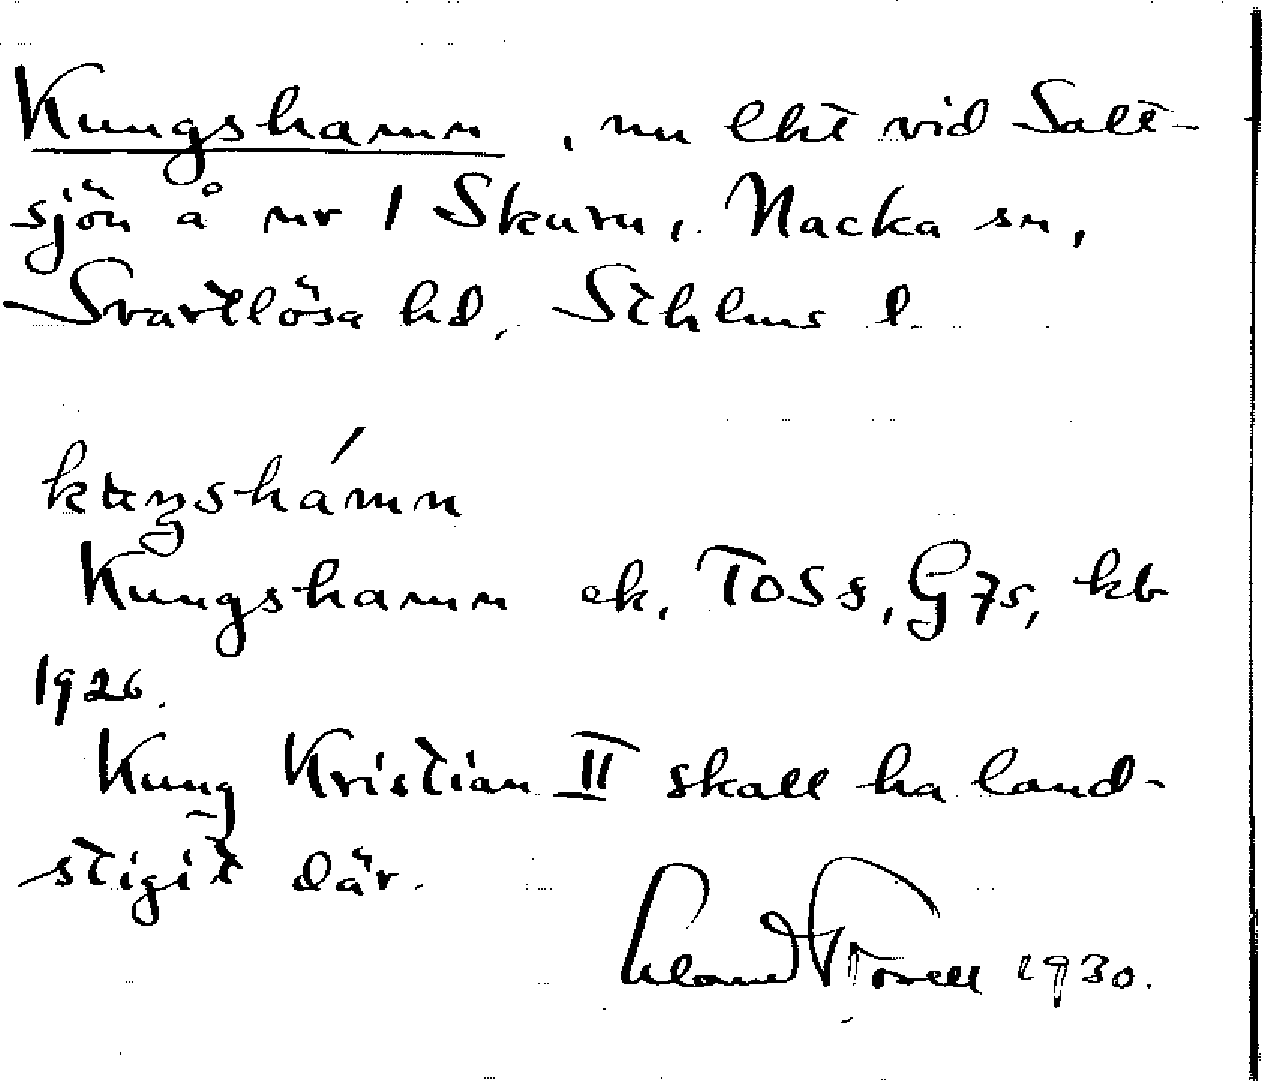 Kungshamn, nu lht vid Salt-
sjön å nr 1 Skuru, Nacka sn,
Svartlösa hd, Sthlms l.
Kungshamn ek. TOSs, G7s, kb
1926.
Kung Kristian II skall ha land-
stigit där.
1930.